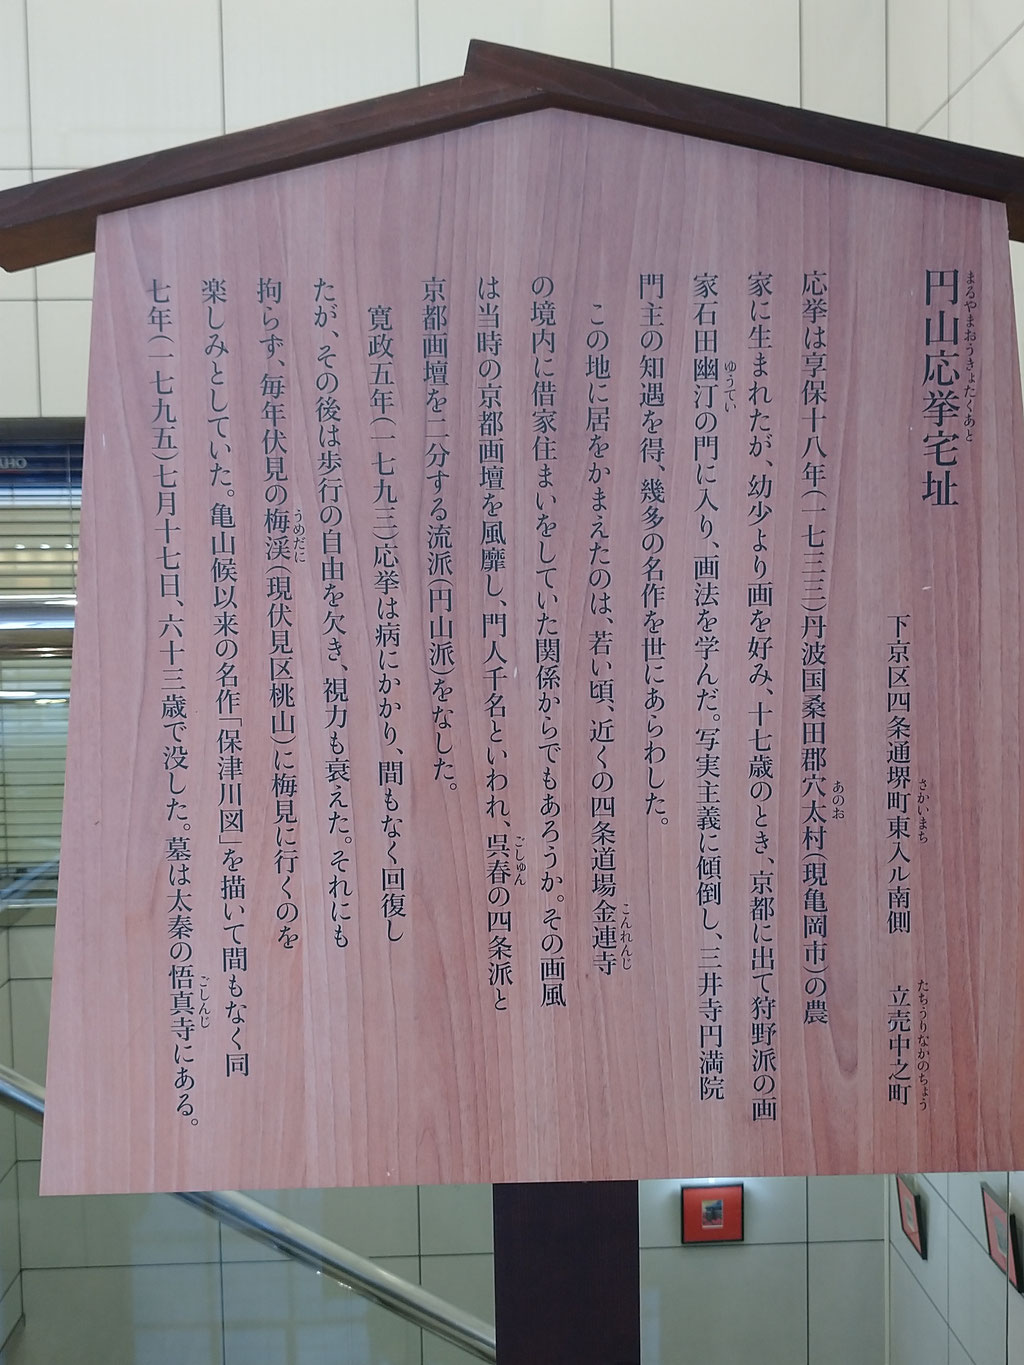 円山応挙宅址
まるやまおうきょたくあと
下京区四条通堺町東入ル南側 立売中之町
さかいまち たちうりなかのちょう
応挙は享保十八年(一七三三)丹波国桑田郡穴太村(現亀岡市)の農
あのお
家に生まれたが、幼少より画を好み、十七歳のとき、京都に出て狩野派の画
家石田幽汀の門に入り、画法を学んだ。写実主義に傾倒し、三井寺円満院
ゆうてい
門主の知遇を得、幾多の名作を世にあらわした。
この地に居をかまえたのは、若い頃、近くの四条道場金連寺
こんれんじ
の境内に借家住まいをしていた関係からでもあろうか。その画風
は当時の京都画壇を風靡し、門人千名といわれ、呉春の四条派と
ごしゅん
京都画壇を二分する流派(円山派)をなした。
寛政五年(一七九三)応挙は病にかかり、間もなく回復し
たが、その後は歩行の自由を欠き、視力も衰えた。それにも
拘らず、毎年伏見の梅渓(現伏見区桃山)に梅見に行くのを
うめだに
楽しみとしていた。亀山候以来の名作「保津川図」を描いて間もなく同
七年(一七九五)七月十七日、六十三歳で没した。墓は太秦の悟真寺にある。
ごしんじ